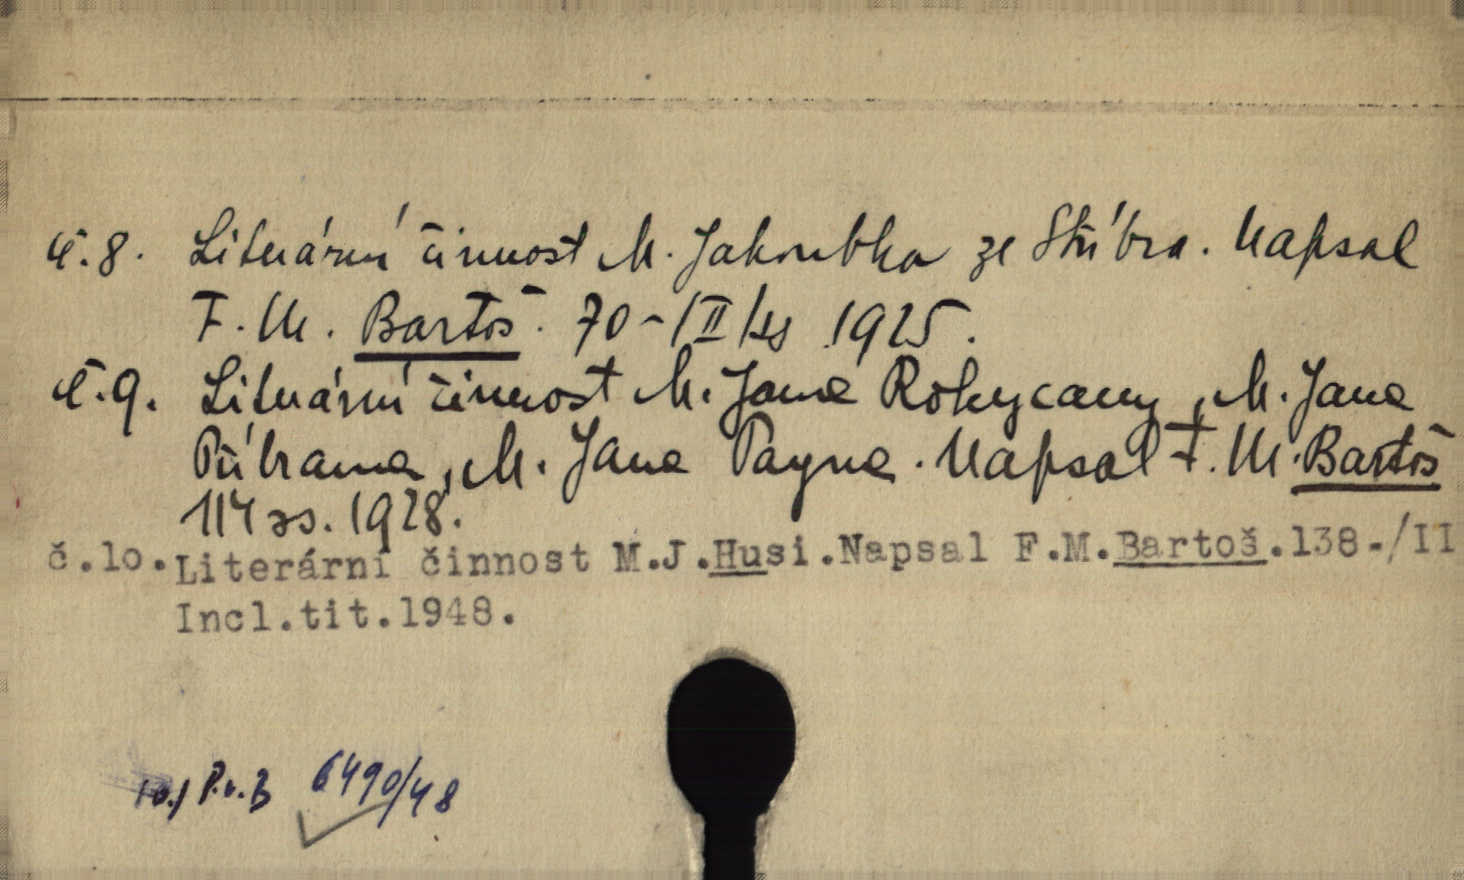 č.8. Literární činnost M. Jakoubka ze Stříbra. Napsal
F. M. Bartoš. 70-/II/ss 1925.
č.9. Literární činnost M. Jana Rokycany, M. Jana
Příbrama, M. Jana Payna. Napsal F. M. Bartoš
114 ss. 1928.
č.10. Literární činnost M.J.Husi.Napsal F.M.Bartoš.138-/II
Incl.tit.1948.
10./ P.v.B 6490/48